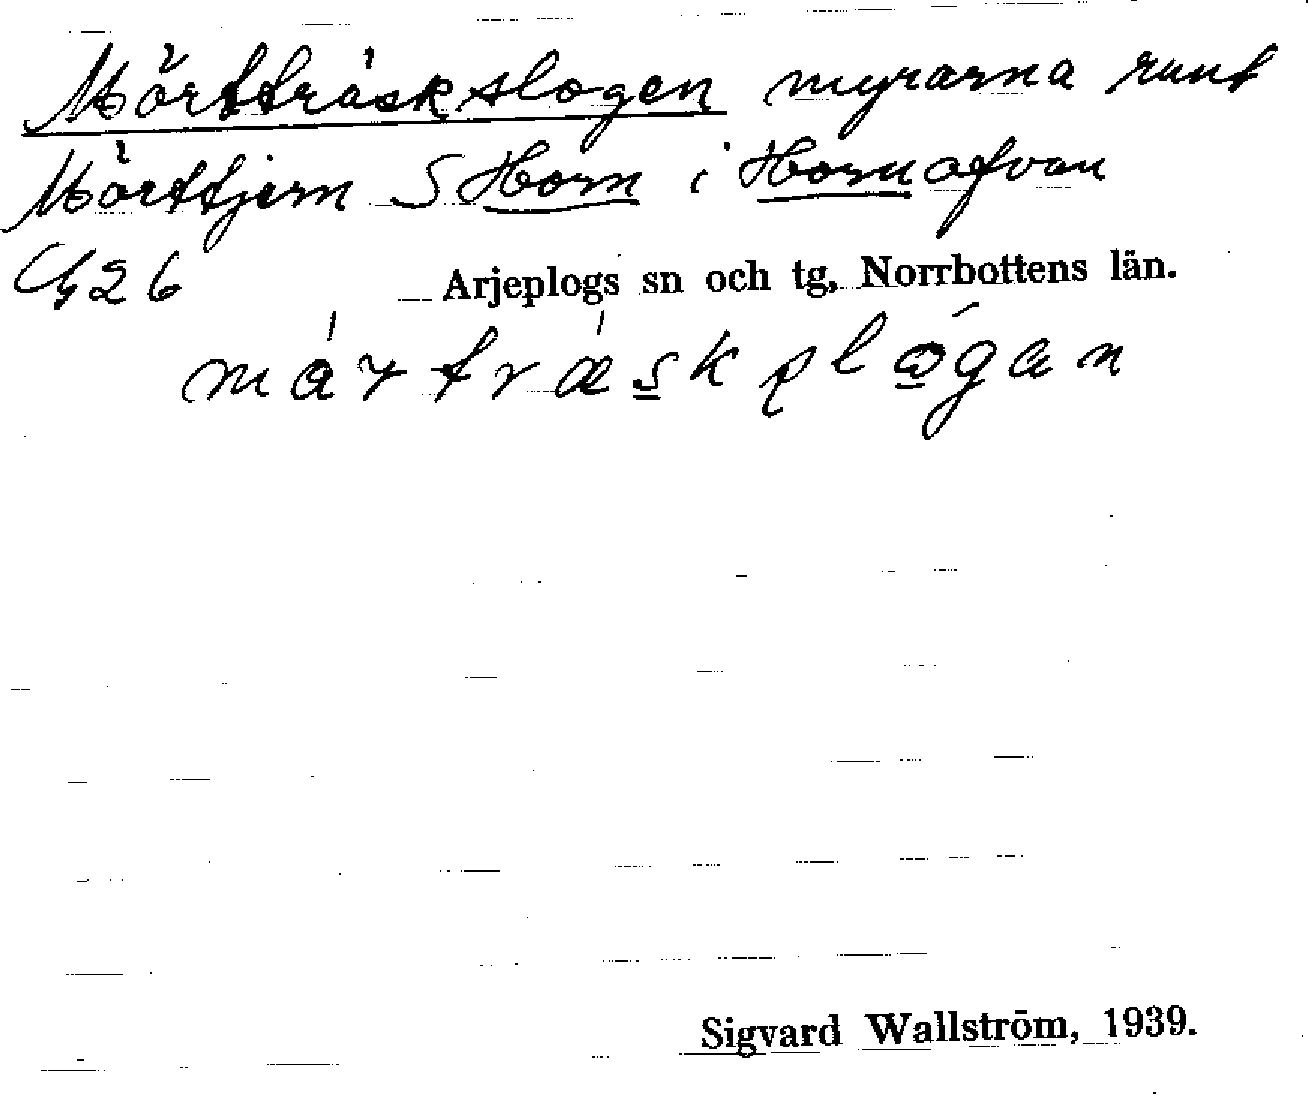 Mörtträskslogen myrarna runt
Mörttjern S Horn i Hornafvan
G26 Arjeplogs sn och tg, Norrbottens län.
Sigvard Wallström, 1939.